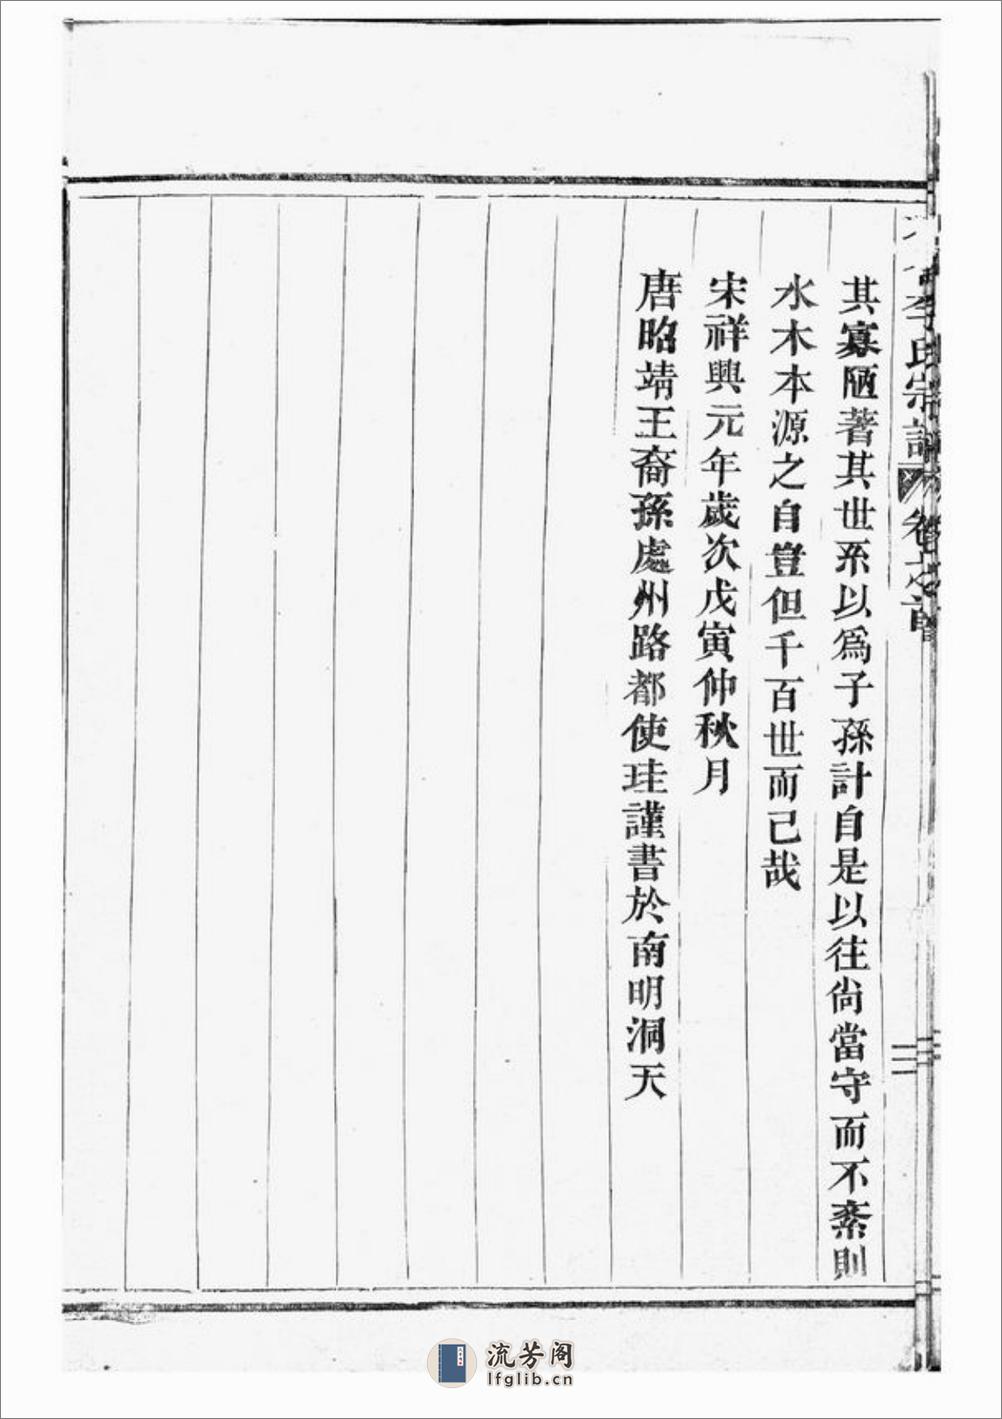 李氏宗譜 卷之首
二
其寡陋著其世系以爲子孫計自是以往尙當守而不紊則
水木本源之自豈但千百世而已哉
宋祥興元年歲次戊寅仲秋月
唐昭靖王裔孫處州路都使珪謹書於南明洞天
流芳阁
lfglib.cn